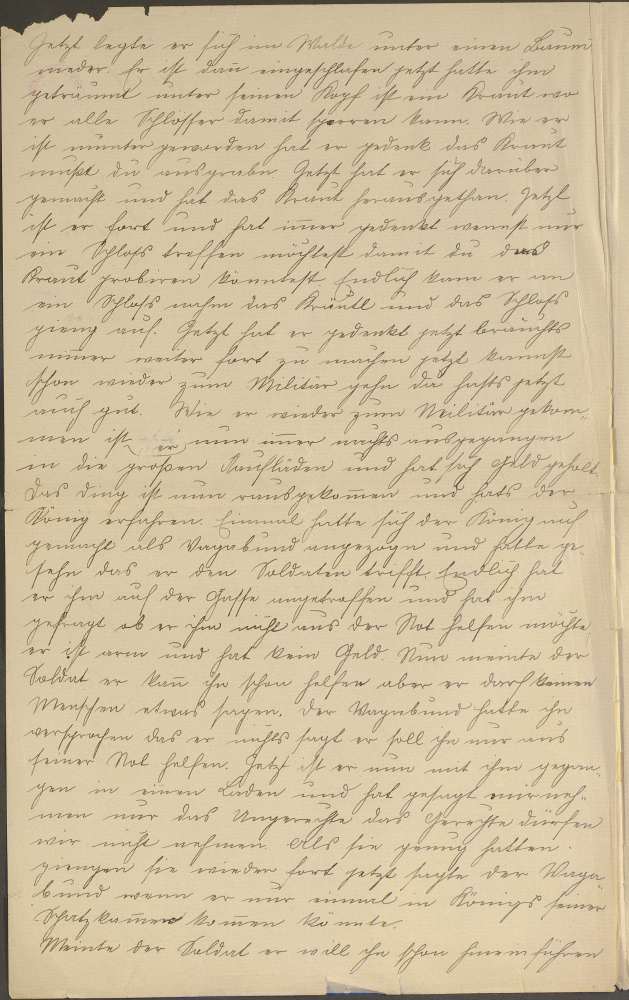 Jetzt legte er sich im Walde unter einen Baum
nieder. Er ist dan̄ eingeschlafen jetzt hatte ihm
geträumt unter seinem Kopf ist ein Kraut wo
er alle Schlosser damit sperren kann. Wie er
ist munter geworden hat er gedenk das Kraut
mußt du ausgrabn. Jetzt hat er sich darüber
gemacht und hat das Kraut herausgethan. Jetzt
ist er fort und hat im̄er gedenkt wennst nur
ein Schloß treffen möchtest damit du das
Kraut probiren könntest. Endlich kam er an
ein Schloß nahm das Kräutl und das Schloß
gieng auf. Jetzt hat er gedenkt jetzt brauchts
nimer weiter fort zu machen jetzt kannst
schon wieder zum Militär gehn du hasts jetzt
auch gut. Wie er wieder zum Militär gekom-
men ist er nun im̄er nachts ausgegangen
in die großen Kaufläden und hat sich Geld geholt.
Das Ding ist nun rausgekom̄en und hats der
König erfahren. Einmal hatte sich der König auf
gemacht als Vagabund angezogn und hatte ge-
sehn das er den Soldaten trifft. Endlich hat
er ihn auf der Gasse angetroffen und hat ihn
gefragt ob er ihm nicht aus der Not helfen möchte
er ist arm und hat kein Geld. Nun meinte der
Soldat er kan̄ ihn schon helfen aber er darf keinen
Menschen etwas sagen. Der Vagabund hatte ihn
versprochen das er nichts sagt er soll ihn nur aus
seiner Not helfen. Jetzt ist er nun mit ihm gegan-
gen in einen Laden und hat gesagt wir neh-
men nur das Ungerechte das Gerechte dürfen
wir nicht nehmen. Als sie genug hatten
giengen sie wieder fort jetzt sagte der Vaga
bund wenn er nur einmal in Königs seiner
Schatzkam̄er kom̄en könnte.
Meinte der Soldat er will ihn schon hineinführen